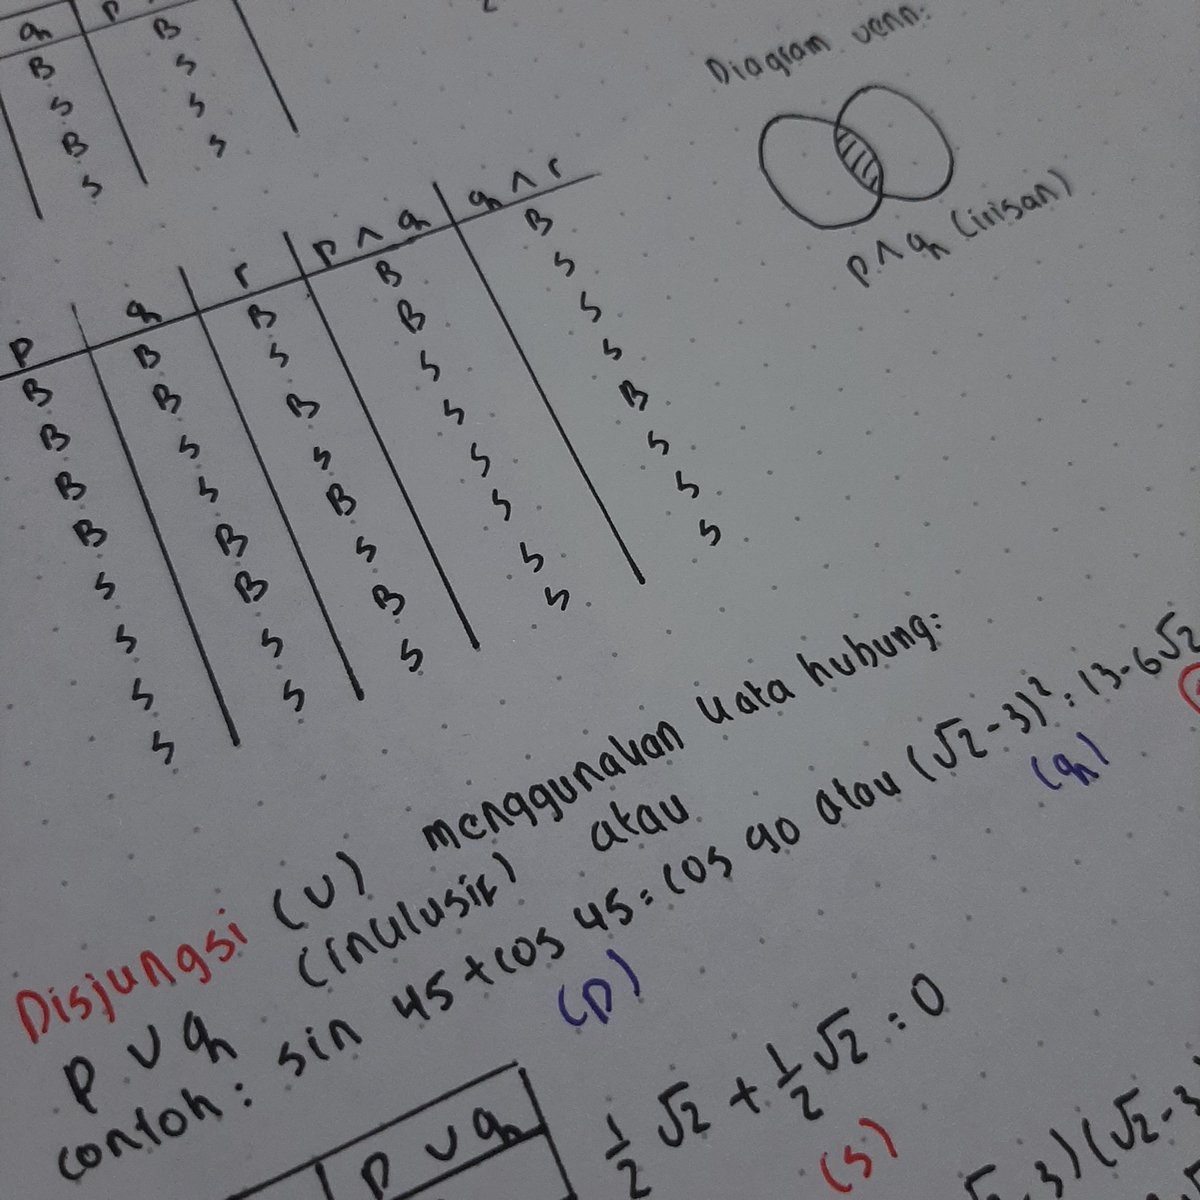 q P
B B
S S
B S
S S
Diagram venn:
p ∧ q (irisan)
P q r p ∧ q q ∧ r
B B B B B
B B S B S
B S B S S
B S S S S
S B B S B
S B S S S
S S B S S
S S S S S
Disjungsi (∪) menggunakan kata hubung:
P ∪ q (inklusif) atau
contoh: sin 45 + cos 45 = cos 90 atau (√2 - 3)² = 13 - 6√2
(p) (q)
1/2 √2 + 1/2 √2 = 0
(S)
P ∪ q
3)(√2 - 3